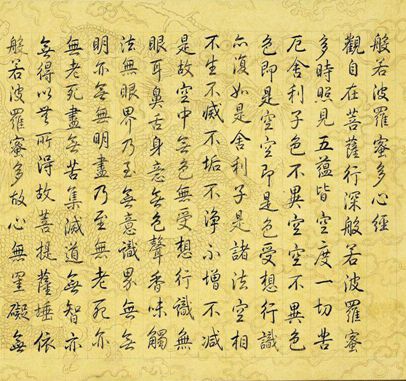 般若波羅蜜多心經
觀自在菩薩行深般若波羅蜜
多時照見五蘊皆空度一切苦
厄舍利子色不異空空不異色
色即是空空即是色受想行識
亦復如是舍利子是諸法空相
不生不滅不垢不淨不增不減
是故空中無色無受想行識無
眼耳鼻舌身意無色聲香味觸
法無眼界乃至無意識界無無
明亦無無明盡乃至無老死亦
無老死盡無苦集滅道無智亦
無得以無所得故菩提薩埵依
般若波羅蜜多故心無罣礙無